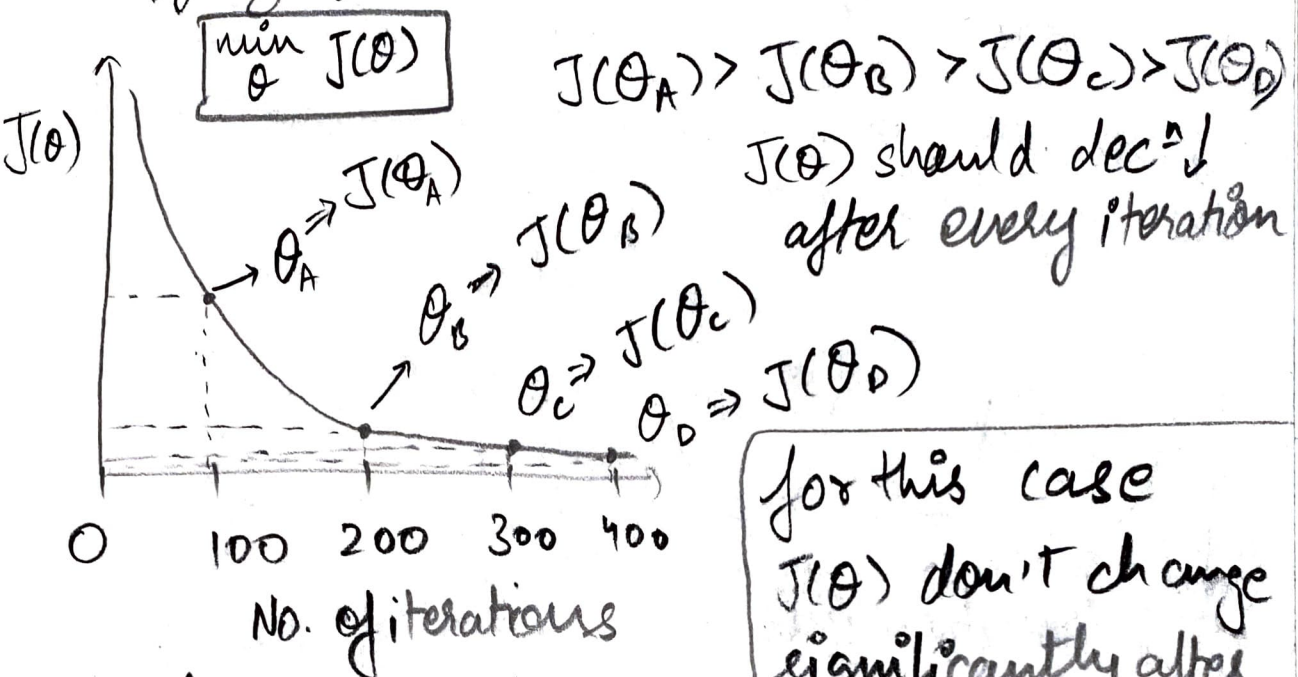 min
θ J(θ)
J(θ_A) > J(θ_B) > J(θ_C) > J(θ_D)
J(θ) should decⁿ↓
after every iteration
J(θ)
θ_A ⇒ J(θ_A)
θ_B ⇒ J(θ_B)
θ_C ⇒ J(θ_C)
θ_D ⇒ J(θ_D)
0 100 200 300 400
No. of iterations
for this case
J(θ) don't change
significantly after